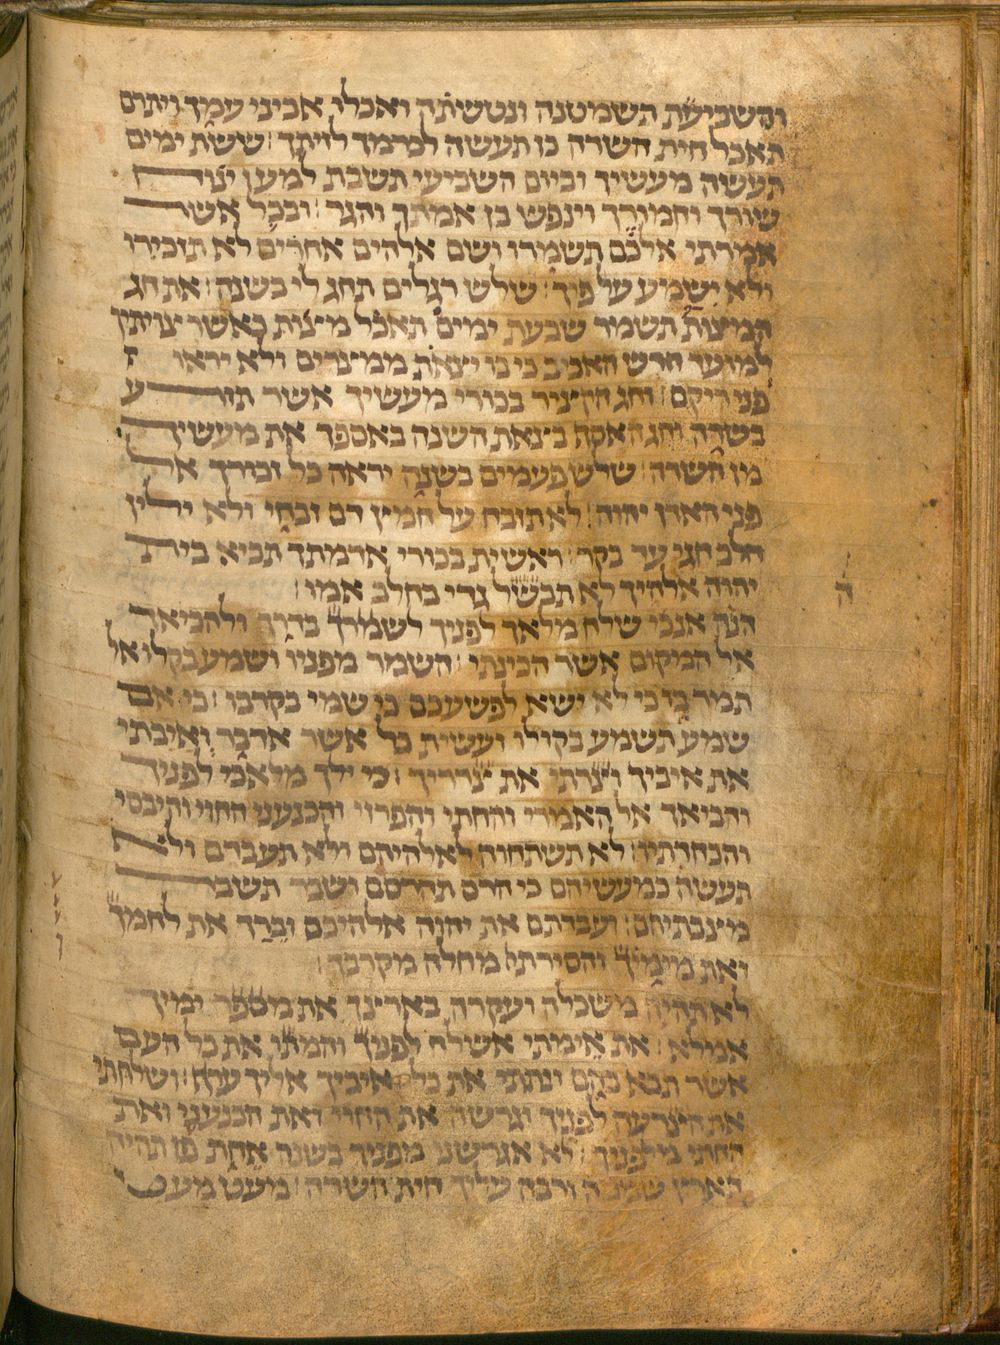 והשביעת תשמטנה ונטשתה ואכלו אביוני עמך ויתרם
תאכל חית השדה כן תעשה לכרמך לזיתך׃ ששת ימים
תעשה מעשיך וביום השביעי תשבת למען ינוח
שורך וחמורך וינפש בן אמתך והגר׃ ובכל אשר
אמרתי אלכם תשמרו ושם אלהים אחרים לא תזכירו
ולא ישמע על פיך׃ שלש רגלים תחג לי בשנה׃ את חג
המיצות תשמר שבעת ימים תאכל מיצות כאשר יצויתיך
למועד חדש האביב כי בו יצאת ממיצרים ולא יראו
פני ריקם׃ וחג הקיציר בכורי מעשיך אשר תזרע
בשדה וחג האסף ביצאת השנה באספך את מעשיך
מן השדה׃ שלש פעמים בשנה יראה כל זכורך אל
פני האדן יהוה׃ לא תזבח על חמיץ דם זבחי ולא ילין
חלב חגי עד בקר׃ ראשית בכורי אדמתך תביא בית
יהוה אלהיך לא תבשל גדי בחלב אמו׃
ה
הנה אנכי שלח מלאך לפניך לשמרך בדרך ולהביאך
אל המקום אשר הכינתי׃ השמר מפניו ושמע בקולו אל
תמר בו כי לא ישא לפשעכם כי שמי בקרבו׃ כי אם
שמע תשמע בקולו ועשית כל אשר אדבר ואיבתי
את איביך ויצרתי את יצרריך׃ כי ילך מלאכי לפניך
והביאך אל האמרי והחתי והפרזי והכנעני החוי והיבסי
והכחדתיו׃ לא תשתחוה לאלהיהם ולא תעבדם ולא
תעשה כמעשיהם כי הרס תהרסם ושבר תשבר
מיצבתיהם׃ ועבדתם את יהוה אלהיכם וברך את לחמך
ואת מימיך והסירתי מחלה מקרבך׃
לא תהיה משכלה ועקרה באריצך את מספר ימיך
אמלא׃ את אימתי אשלח לפניך והמתי את כל העם
אשר תבא בהם ונתתי את כל איביך אליך ערף׃ ושלחתי
את היצרעה לפניך וגרשה את החוי ואת הכנעני ואת
החתי מילפניך׃ לא אגרשנו מפניך בשנה אחת פן תהיה
האריץ שממה ורבה עליך חית השדה׃ מעט מעט